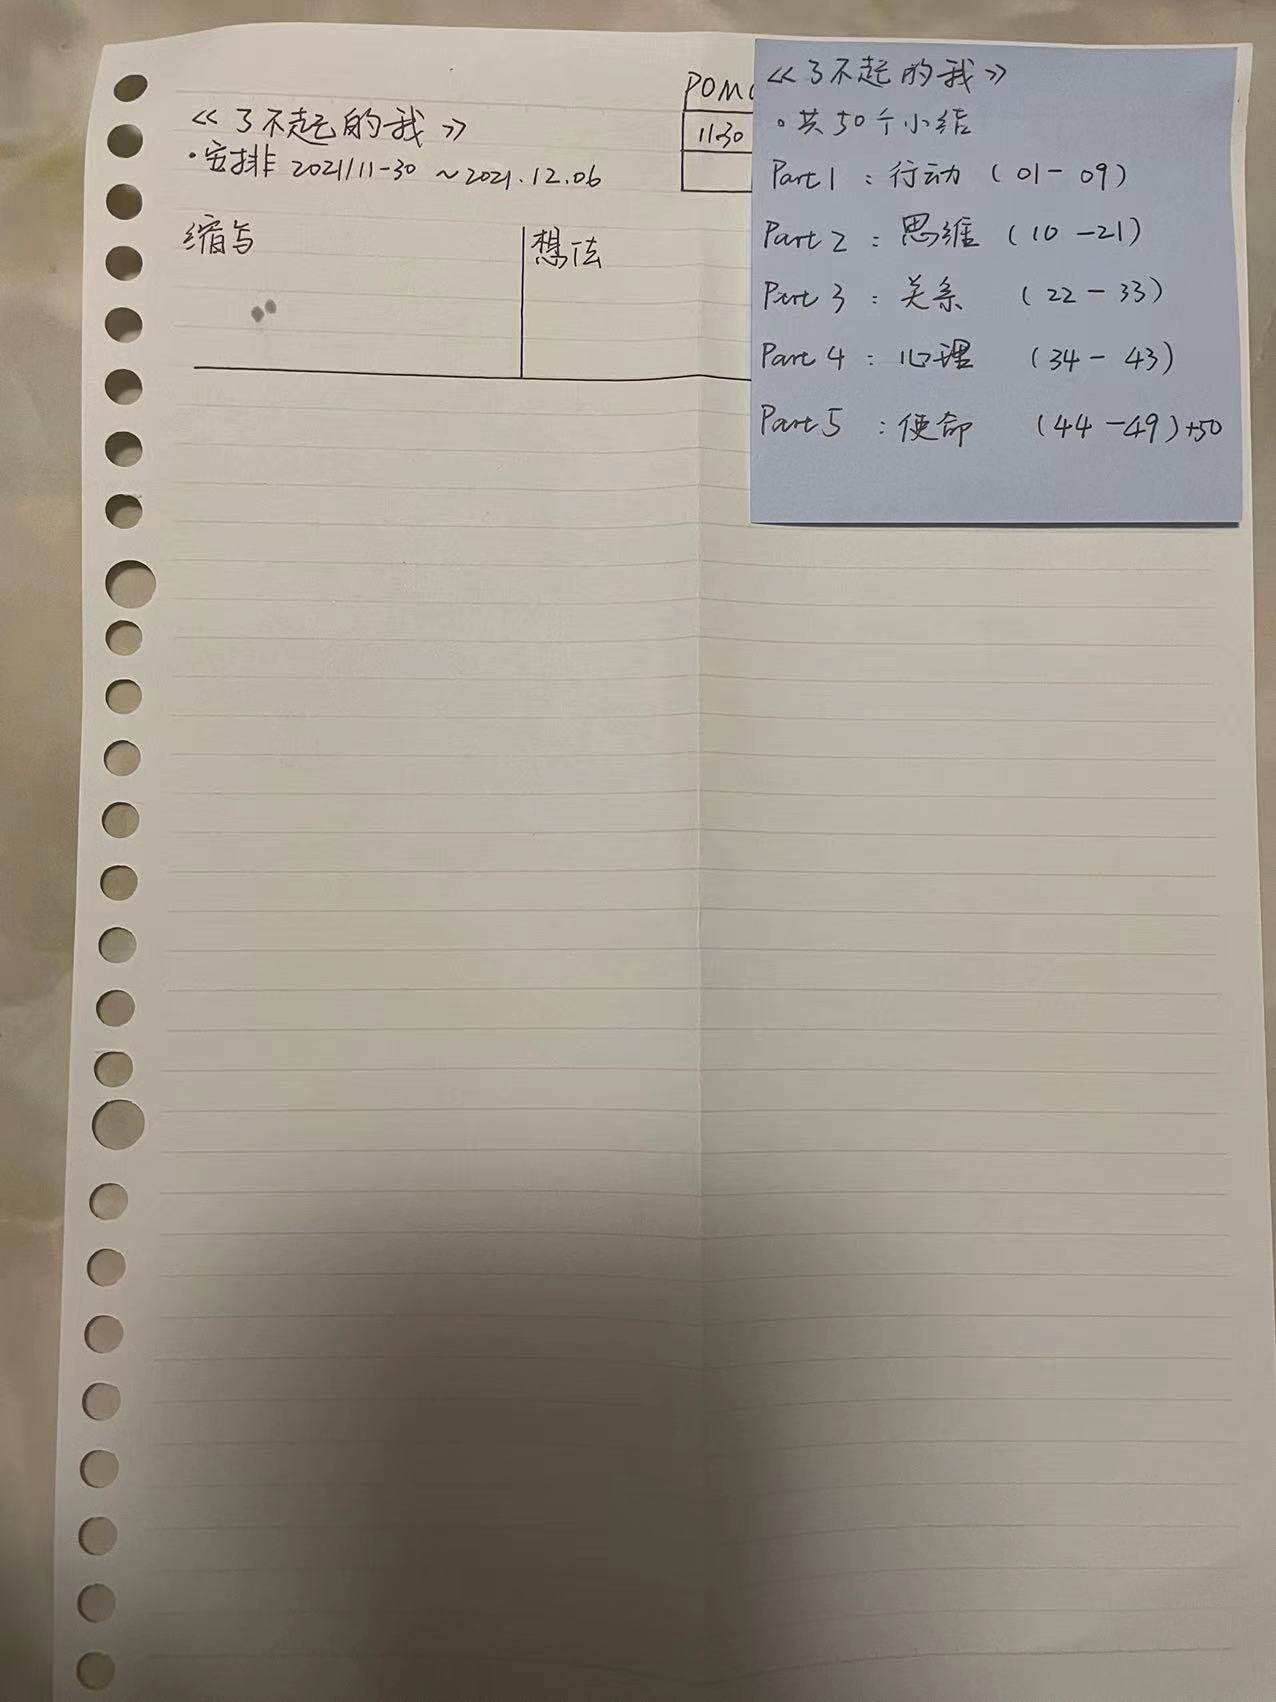 《了不起的我》
·安排 2021/11-30 ~2021.12.06
缩写
想法
POMO
11.30
《了不起的我》
·共50个小结
Part1:行动(01-09)
Part2:思维(10-21)
Part3:关系(22-33)
Part4:心理(34-43)
Part5:使命(44-49)+50